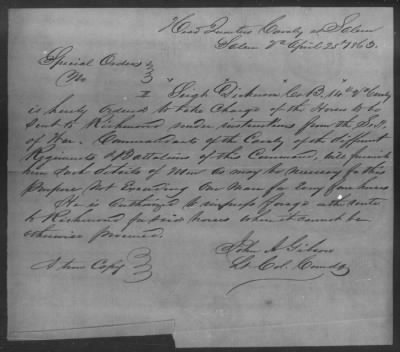 Head Quarters Cavalry at Salem
Salem Va April 25th 1863.
Special Orders
No
I Sergt Dickson Co B. 14th Va Cavalry
is hereby ordered to take Charge of the Horses to be
sent to Richmond under instructions from the Sect.
of War. Commandants of the Cavalry of the different
Regiments & Battalions of this Command, will furnish
him such details of Men as may be necessary for this
purpose not Exceeding One Man for Every four horses
He is authorized to impress forage on the route
to Richmond for said horses when it cannot be
otherwise procured.
John A Gibson
A true Copy
Lt Col. Comdg